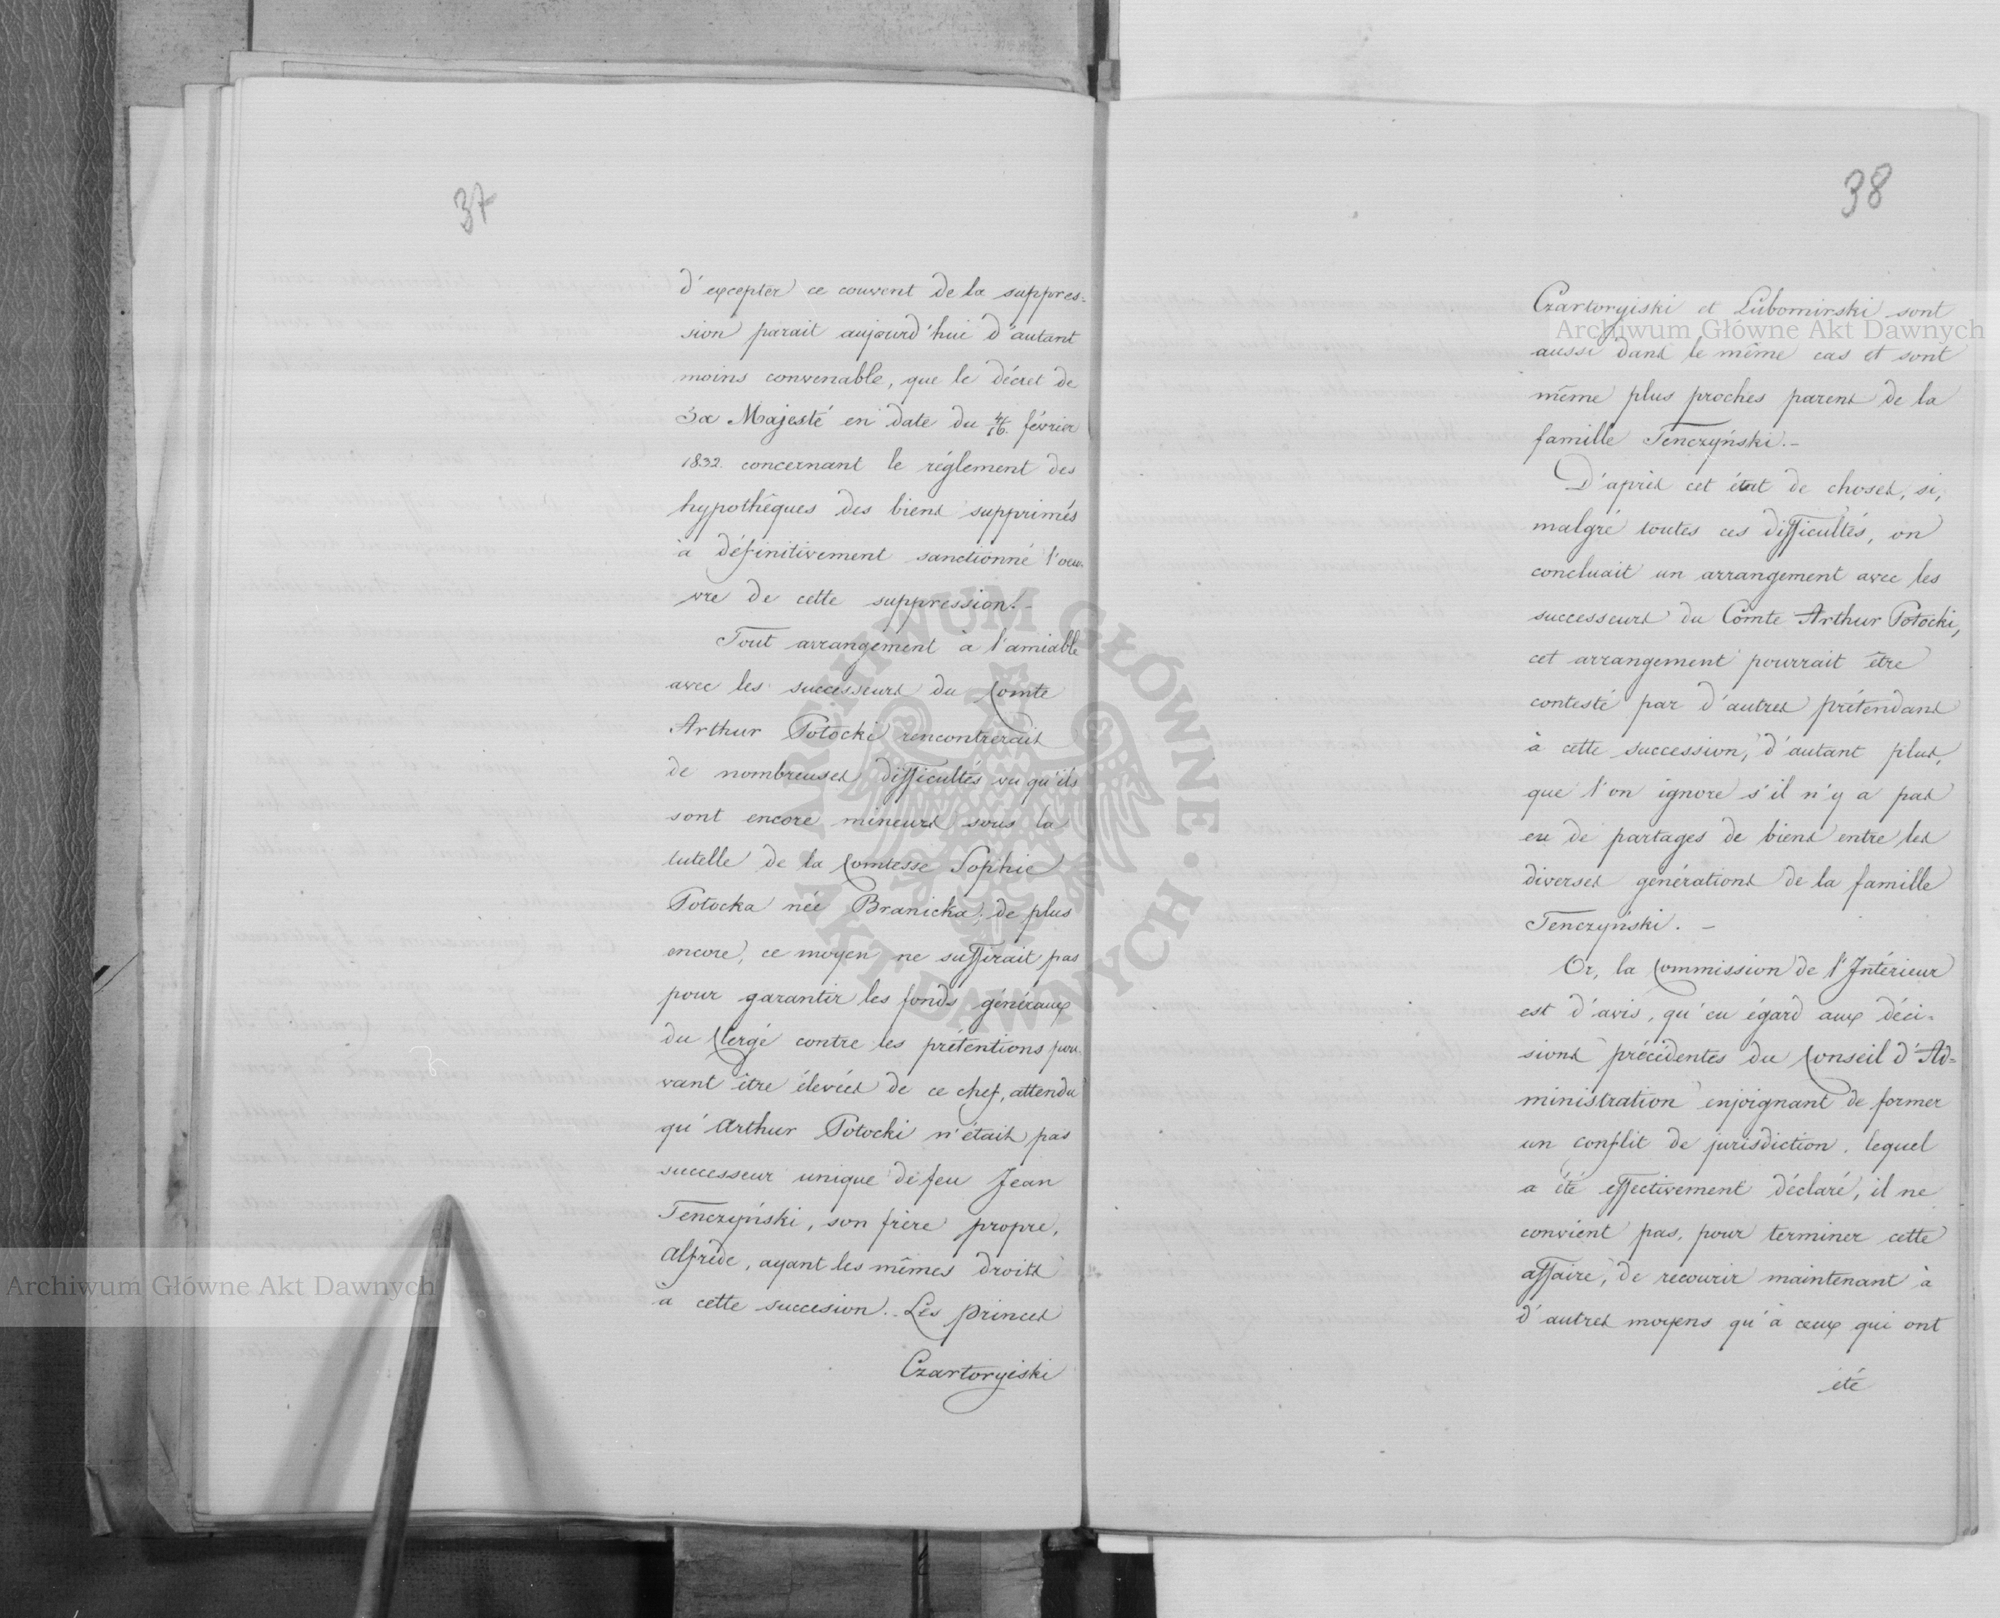 37
d'excepter ce couvent de la suppres=
sion parait aujourd'hui d'autant
moins convenable, que le décret de
Sa Majesté en date du 4/16. février
1832. concernant le réglement des
hypothêques des biens supprimés
a définitivement sanctionné l'oeu-
vre de cette suppression. -
Tout arrangement à l'amiable
avec les successeurs du Comte
Arthur Potocki rencontrerait
de nombreuses difficultés vu qu'ils
sont encore mineurs sous la
tutelle de la Comtesse Sophie
Potocka née Branicka, de plus
encore, ce moyen ne suffirait pas
pour garantir les fonds généraux
du Clergé contre les prétentions pou-
vant être élevées de ce chef, attendu
qu'Arthur Potocki n'était pas
successeur unique de feu Jean
Tenczyński, son frère propre,
Alfrède, ayant les mêmes droits
à cette succesion. - Les Princes
Czartoryiski
38
Czartoryiski et Lubomirski sont
aussi dans le même cas et sont
même plus proches parens de la
famille Tenczyński. -
D'après cet état de choses, si,
malgré toutes ces difficultés, on
concluait un arrangement avec les
successeurs du Comte Arthur Potocki,
cet arrangement pourrait être
contesté par d'autres prétendans
à cette succession, d'autant plus,
que l'on ignore s'il n'y a pas
eu de partages de biens entre les
diverses générations de la famille
Tenczyński. -
Or, la Commission de l'Intérieur
est d'avis, qu'eu égard aux déci=
sions précédentes du Conseil d'Ad=
ministration enjoignant de former
un conflit de jurisdiction, lequel
a été effectivement déclaré, il ne
convient pas, pour terminer cette
affaire, de recourir maintenant à
d'autres moyens qu'à ceux qui ont
été
Archiwum Główne Akt Dawnych
Archiwum Główne Akt Dawnych
ARCHIWUM GŁÓWNE · AKT DAWNYCH ·